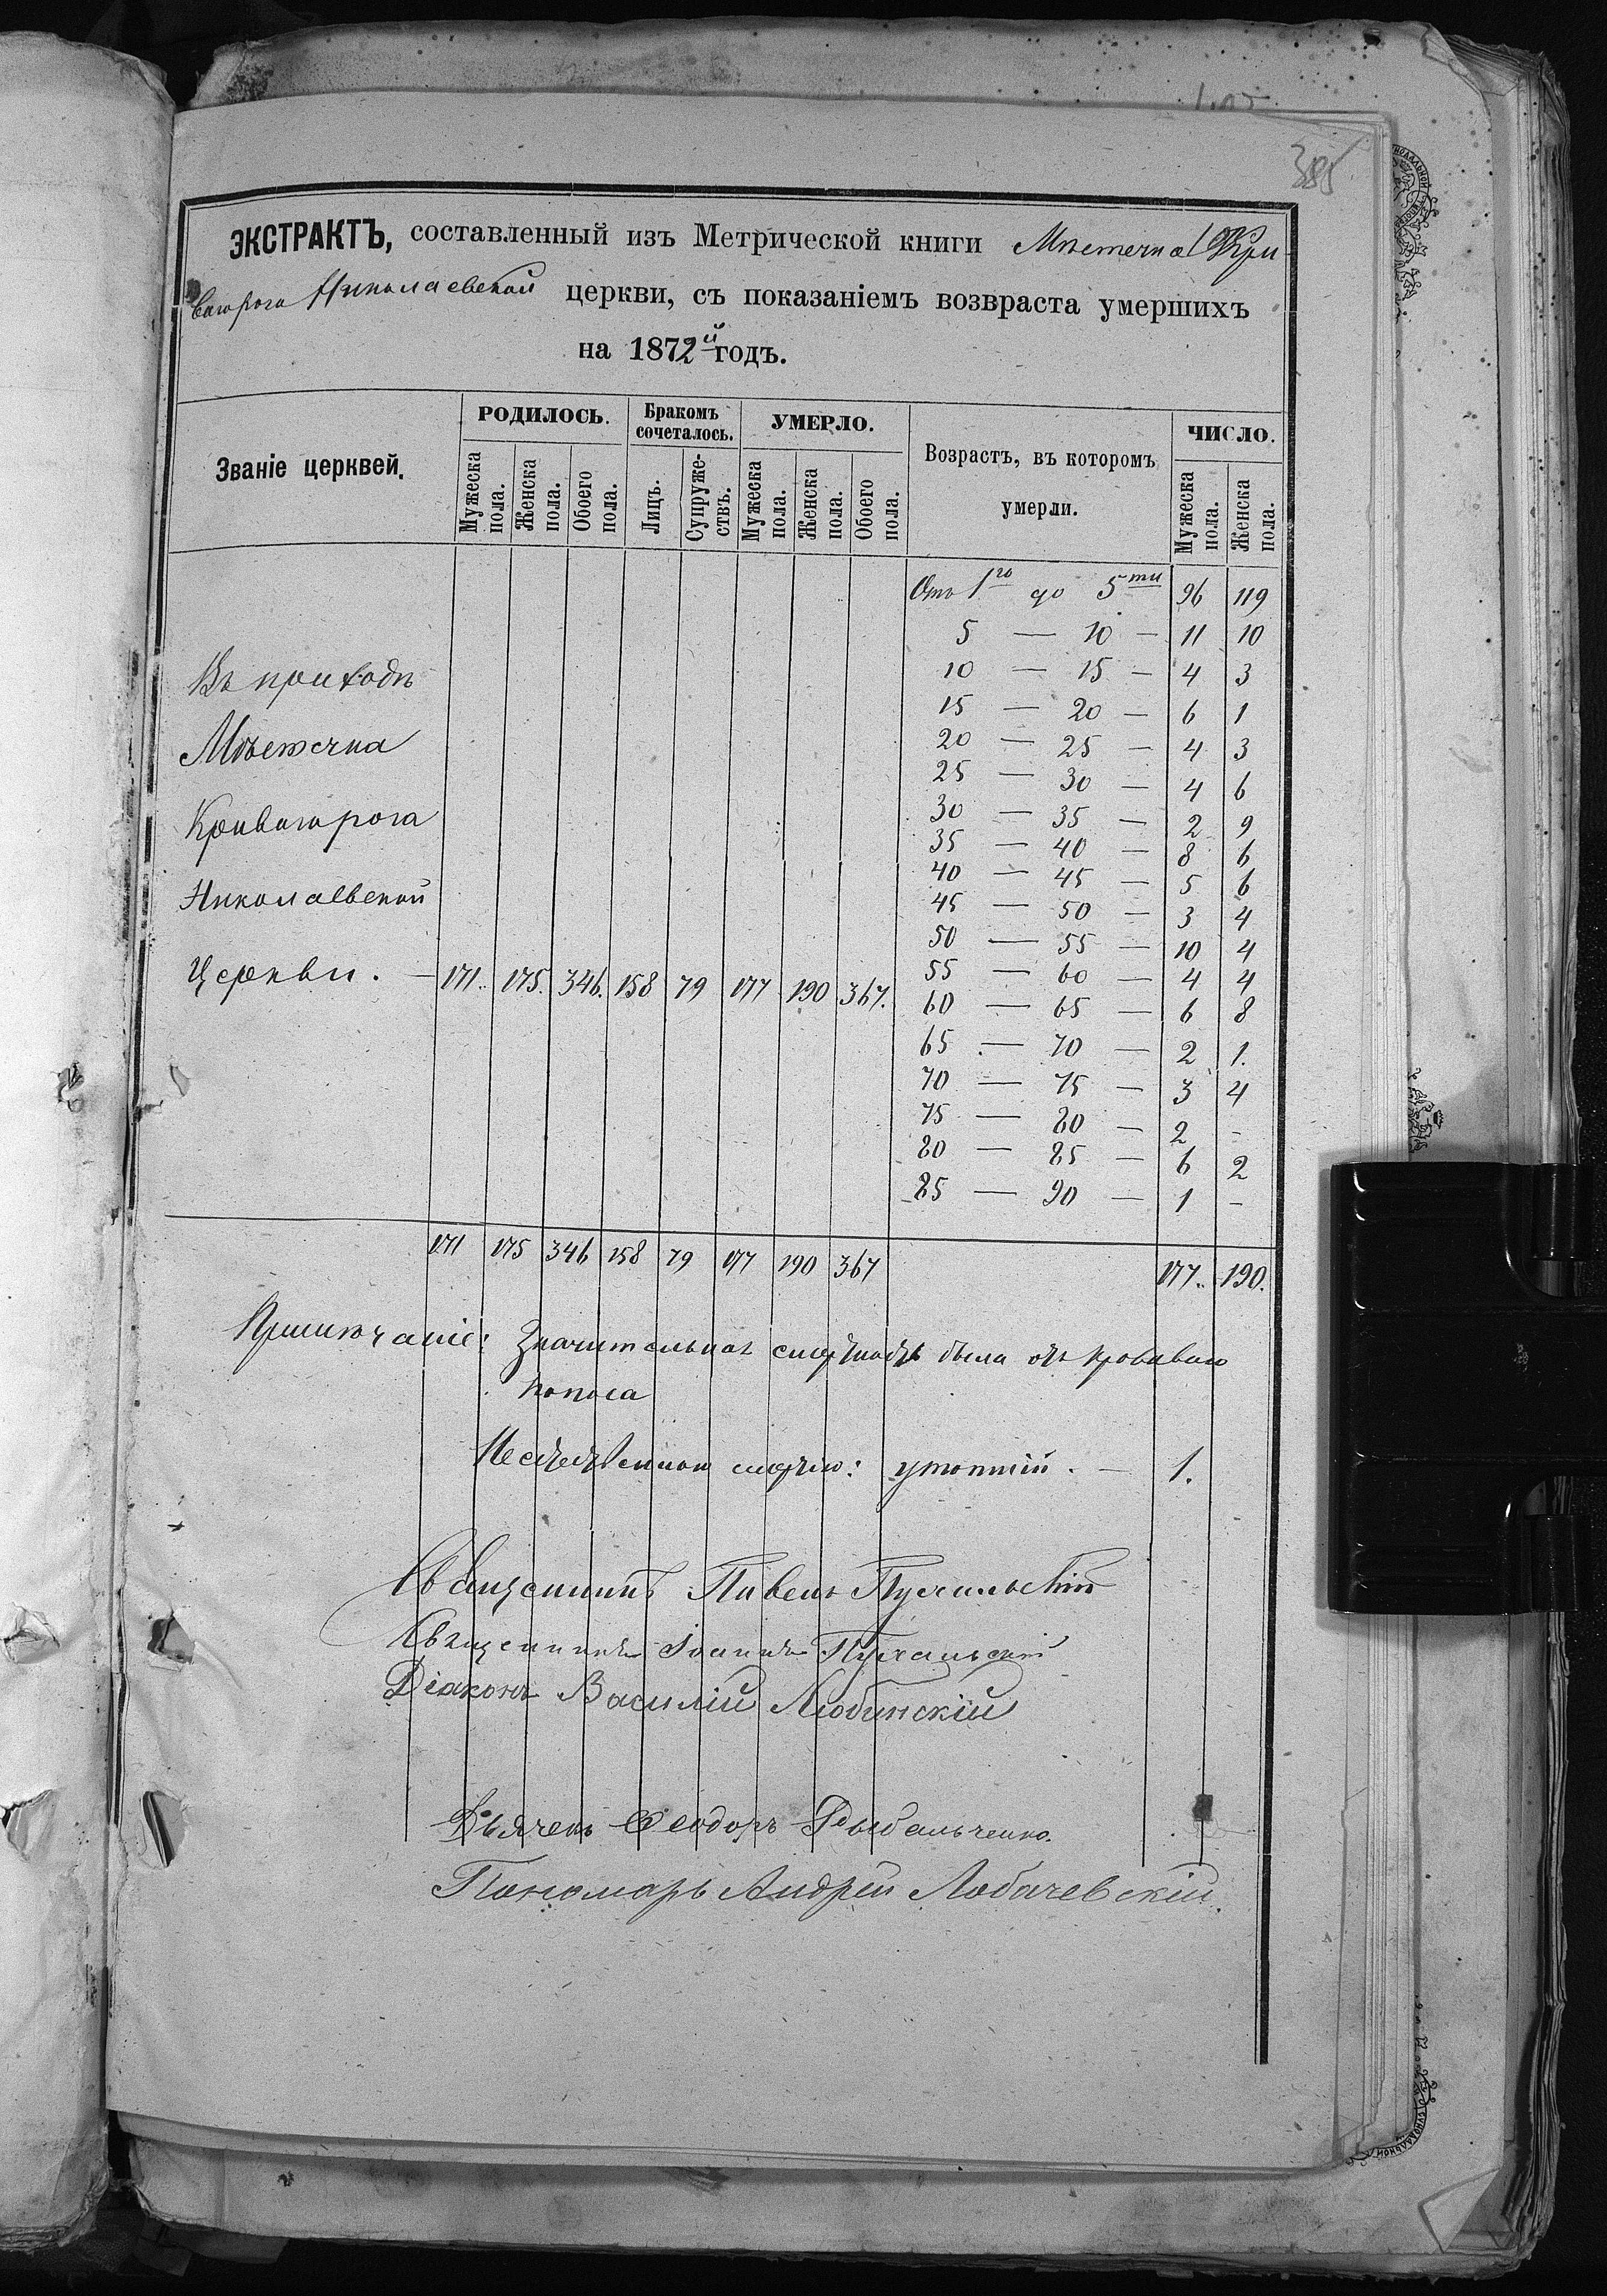 385
ЭКСТРАКТЪ, составленный изъ Метрической книги Мѣстечка Кри
ваирога Николаевской церкви, съ показаніемъ возвраста умершихъ
на 1872й годъ.
Званіе церквей.
РОДИЛОСЬ.
Бракомъ сочеталось.
УМЕРЛО.
Возрастъ, въ которомъ умерли.
ЧИСЛО.
Мужеска пола.
Женска пола.
Обоего пола.
Лицъ.
Супружествъ.
Мужеска пола.
Женска пола.
Обоего пола.
Мужеска пола.
Женска пола.
Отъ 1го до 5ти 96 119
5 — 10 — 11 10
Въ приходѣ
10 — 15 — 4 3
15 — 20 — 6 1
Мѣстечка
20 — 25 — 4 3
25 — 30 — 4 6
Криваирога
30 — 35 — 2 9
35 — 40 — 8 6
40 — 45 — 5 6
Николаевской
45 — 50 — 3 4
50 — 55 — 10 4
Церкви. — 171. 175. 346. 158 79 177 190 367.
55 — 60 — 4 4
60 — 65 — 6 8
65 — 70 — 2 1.
70 — 75 — 3 4
75 — 80 — 2 -
80 — 85 — 6 2
85 — 90 — 1 -
171 175 346 158 79 177 190 367 177. 190.
Примѣчаніе: Значительная смертность была отъ кроваваго
поноса
Неестественною смертію: утопшій. — 1.
Священникъ Павелъ Пухальскій
Священникъ Іоаннъ Пухальскій
Діаконъ Василій Любинскій
Дьячекъ Ѳеодоръ Рыбальченко.
Пономарь Андрей Лобачевскій.